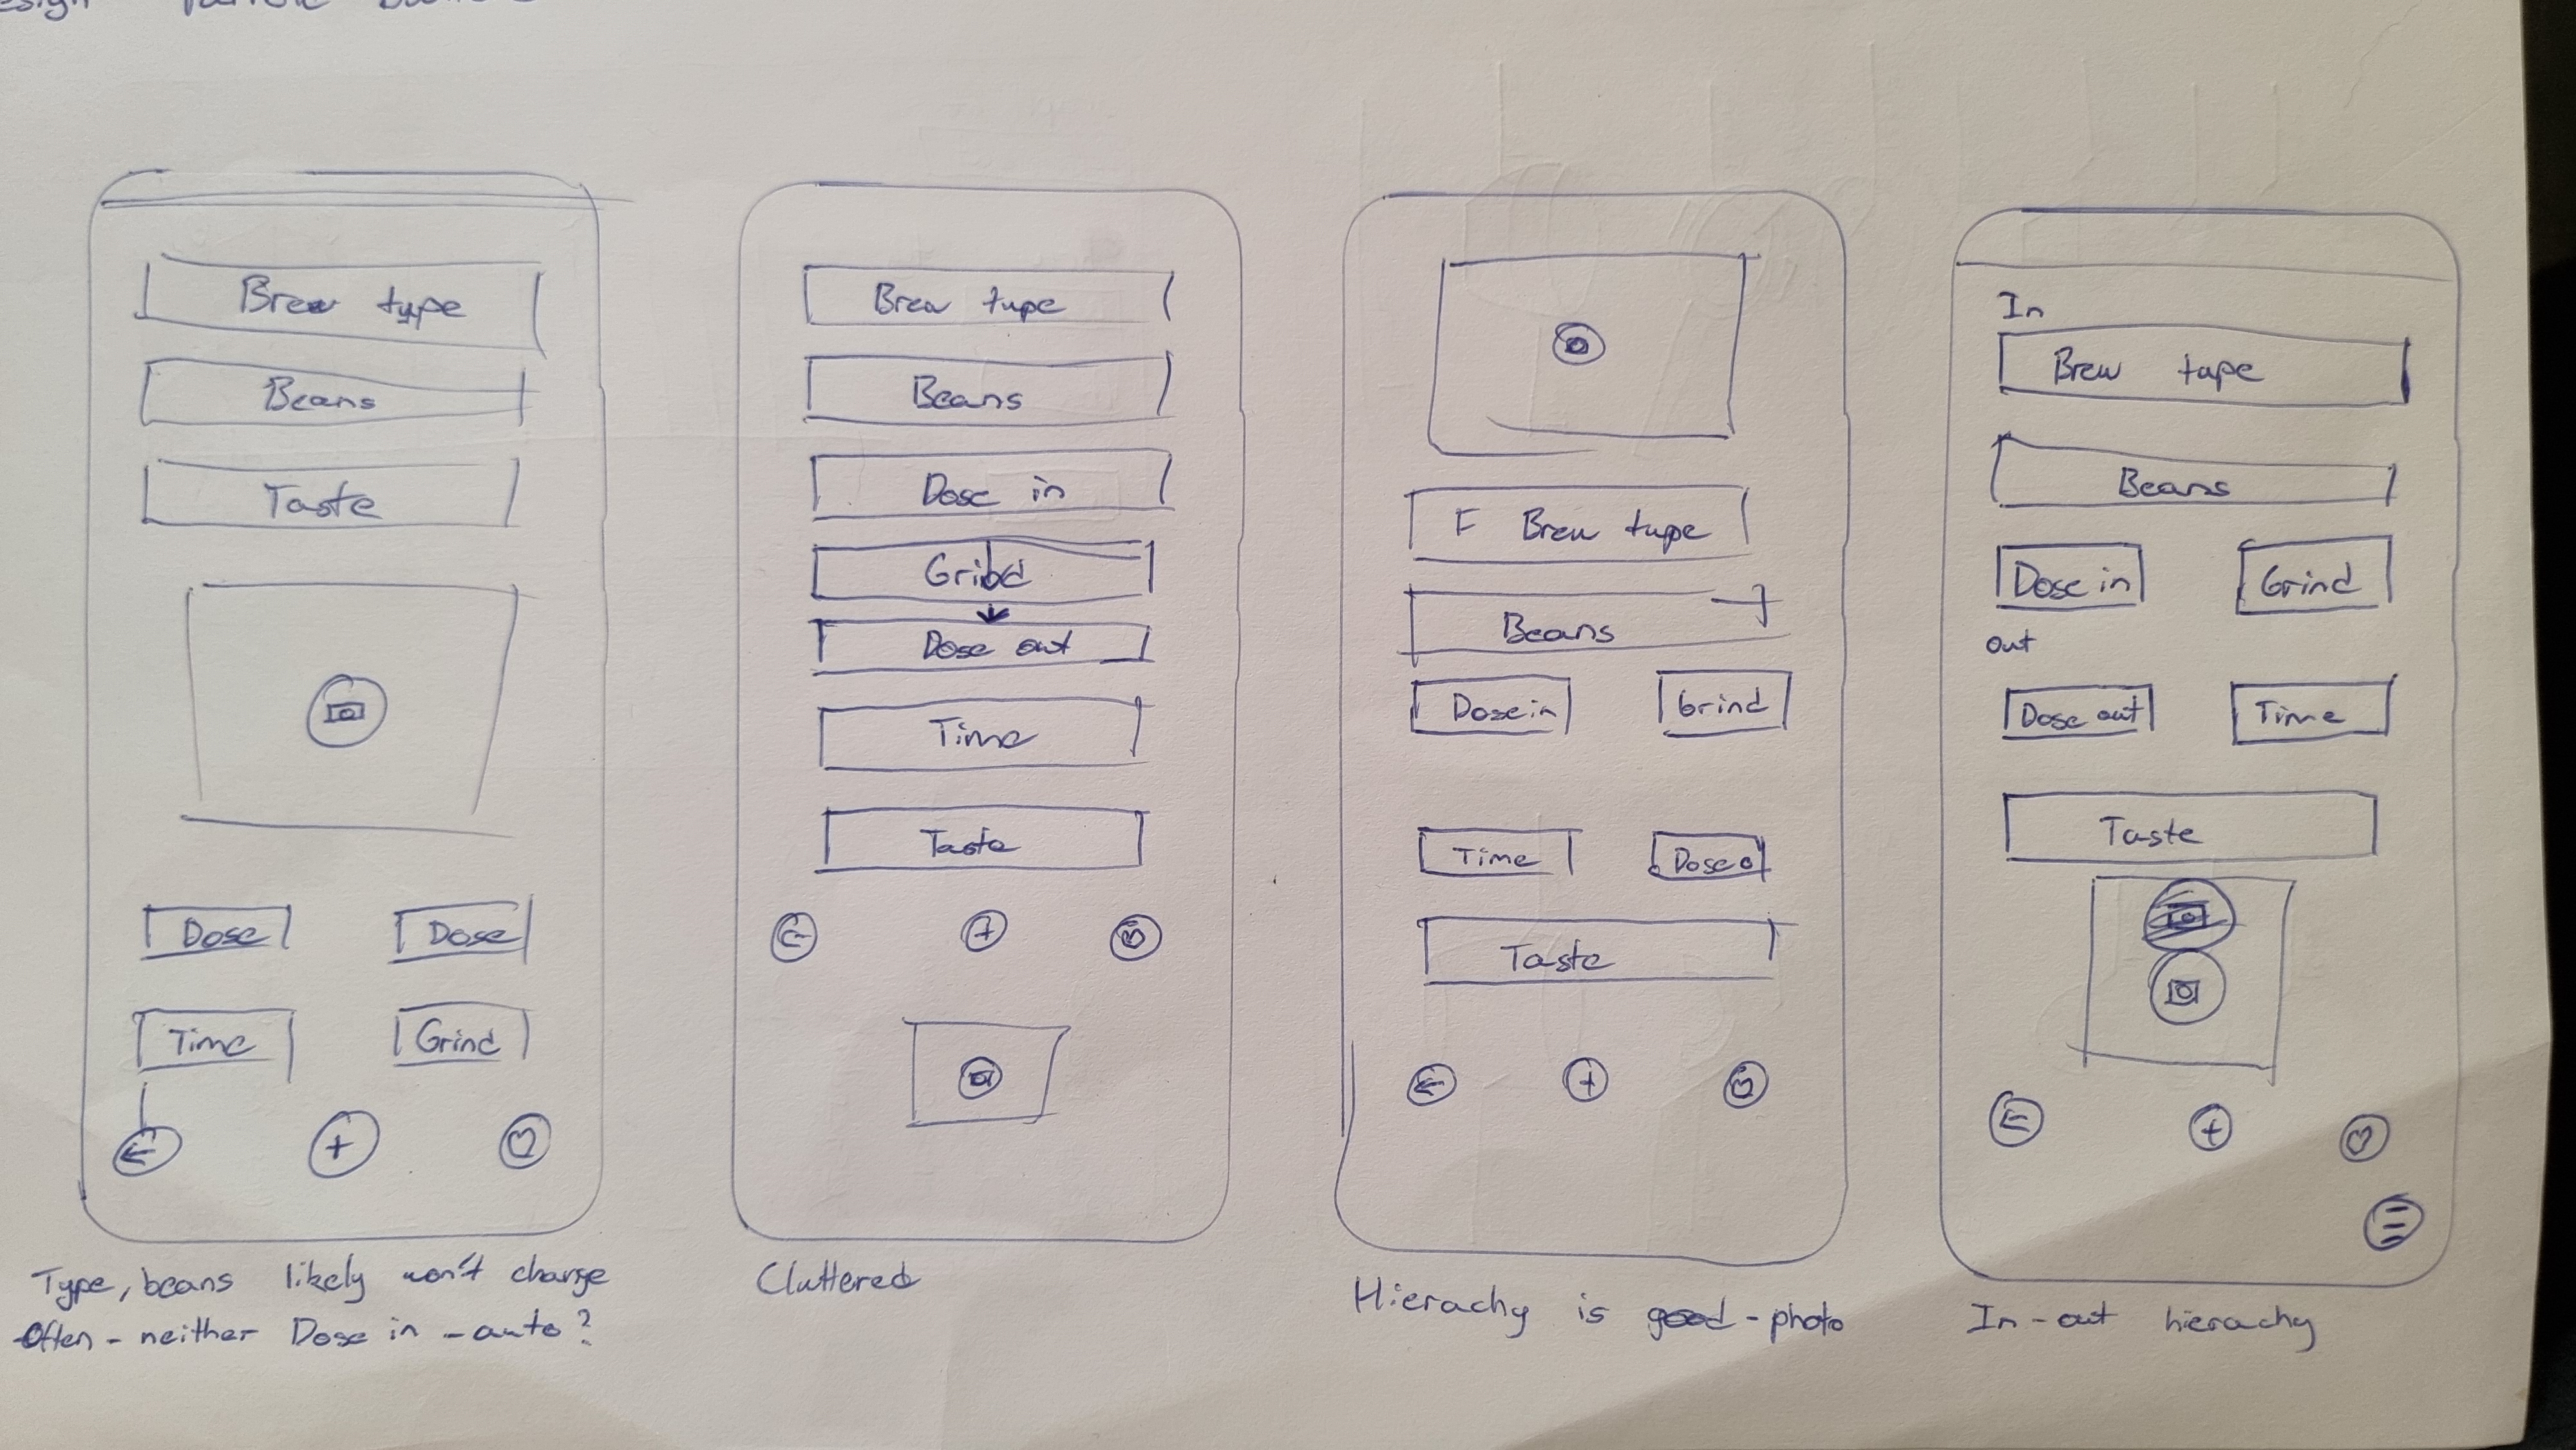 Brew type
Beans
Taste
Dose
Dose
Time
Grind
Type, beans likely won't change
often - neither Dose in - aute?
Brew type
Beans
Dose in
Grind
Dose out
Time
Taste
Cluttered
Brew type
Beans
Dose in
Grind
Time
Dose o
Taste
Hierachy is good - photo
In
Brew type
Beans
Dose in
Grind
out
Dose out
Time
Taste
In - out hierachy